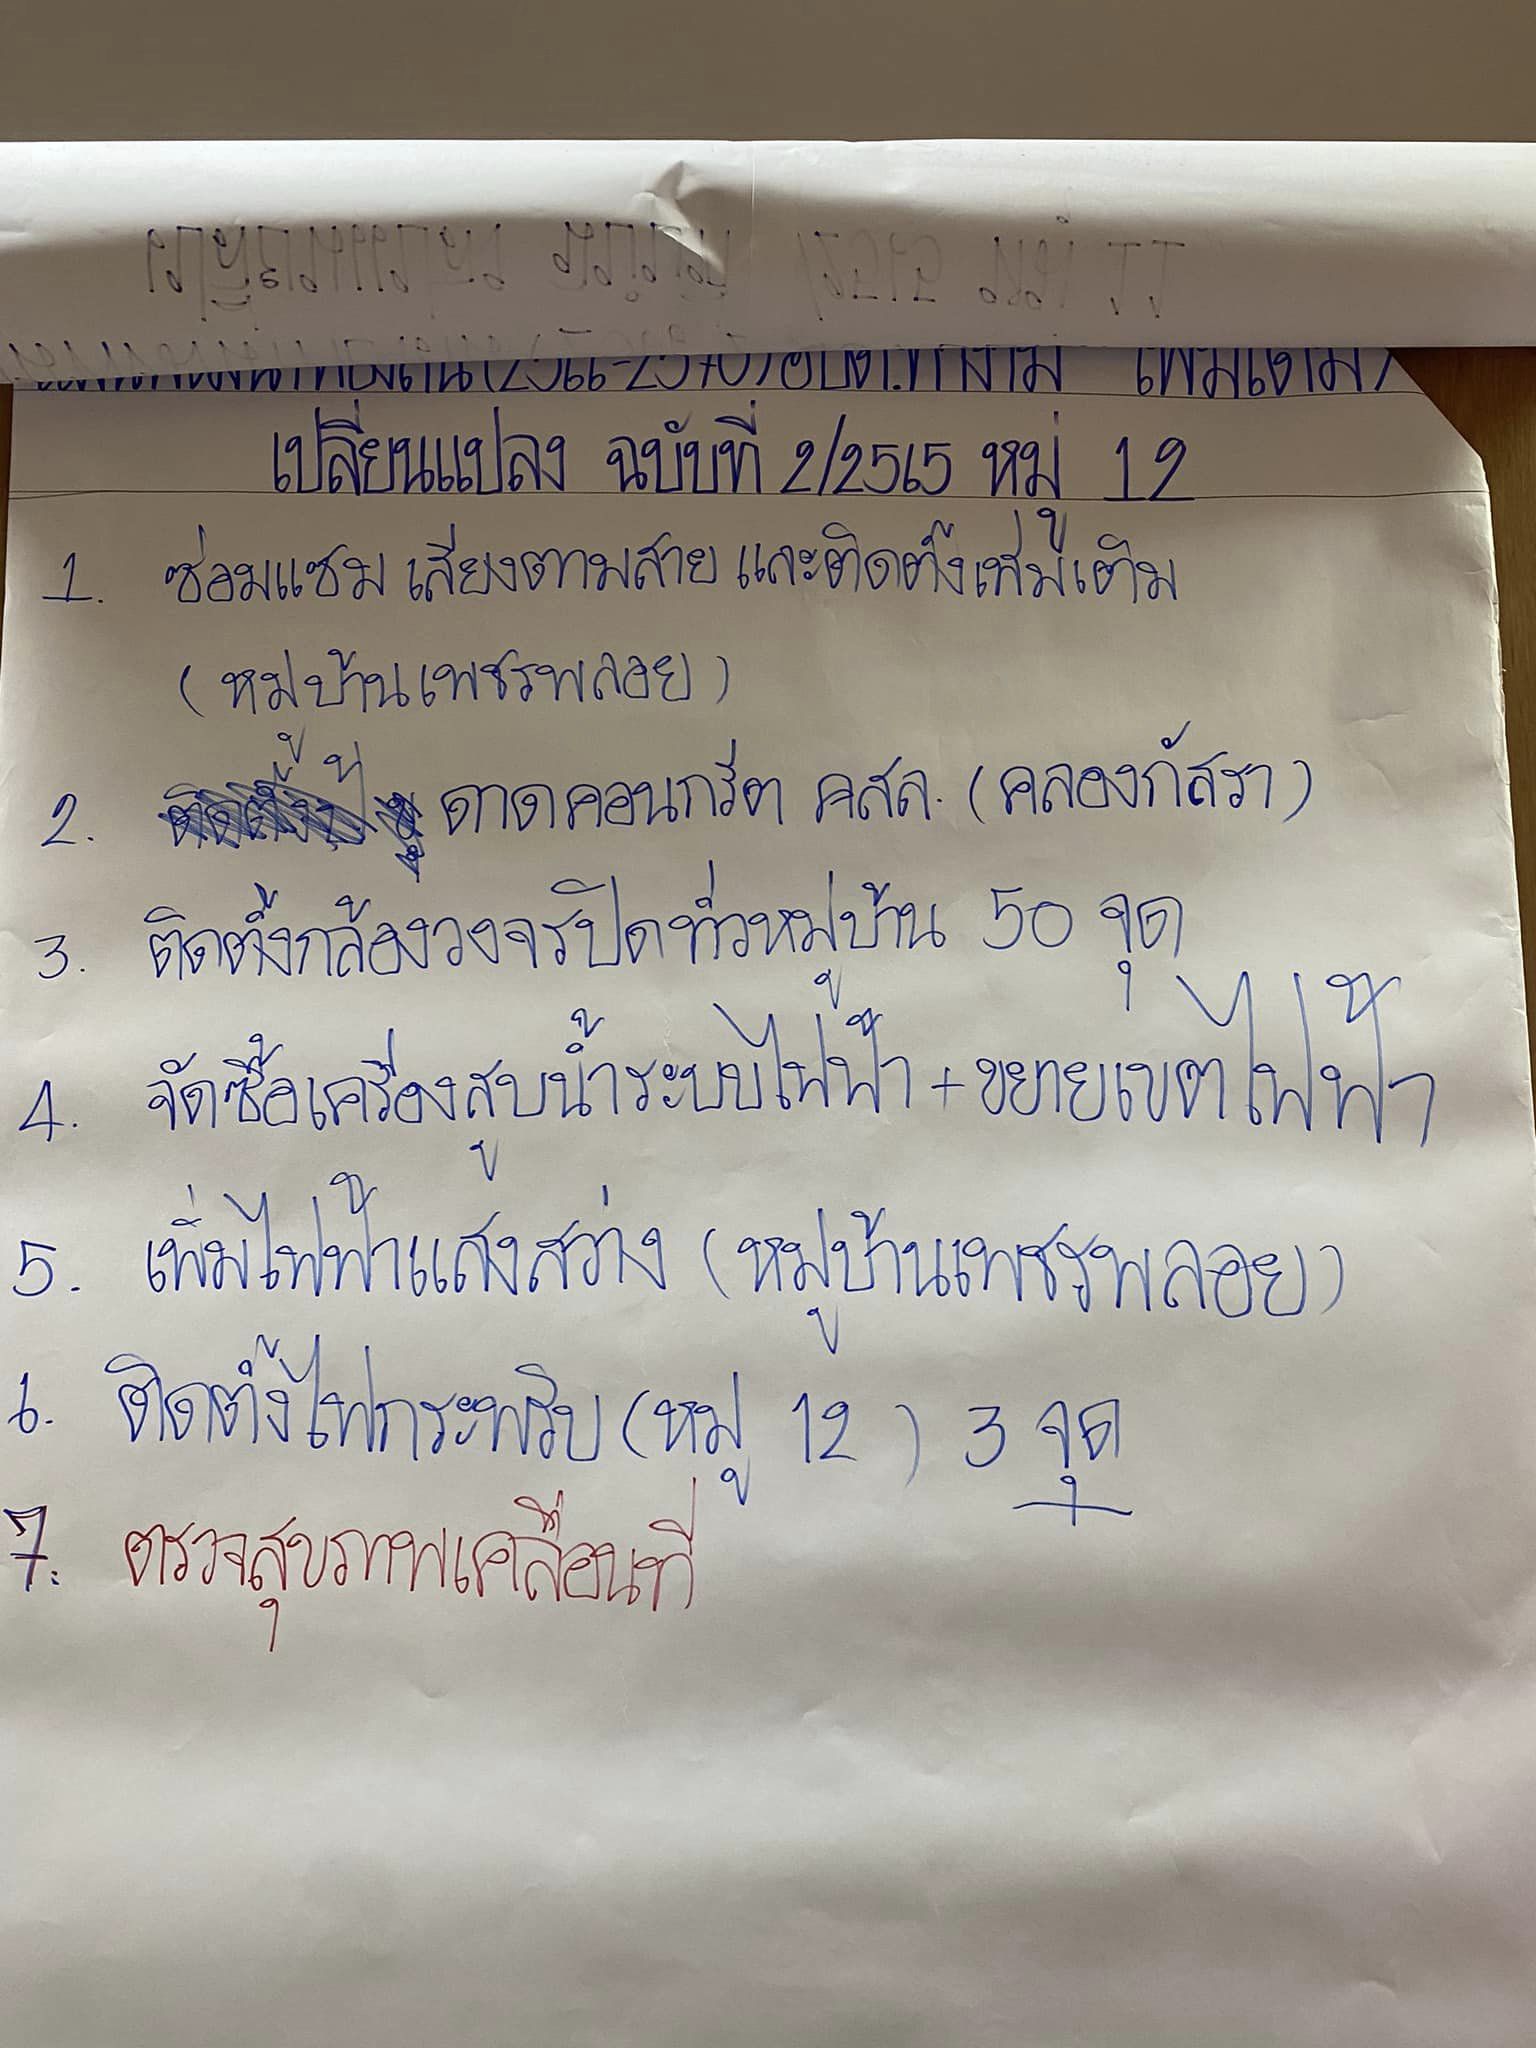 (2566-2570) อบต.ท่างาม เพิ่มเติม/
เปลี่ยนแปลง ฉบับที่ 2/2565 หมู่ 12
1. ซ่อมแซม เสียงตามสาย และติดตั้งเพิ่มเติม
(หมู่บ้านเพชรพลอย)
2. ดาดคอนกรีต คสล. (คลองกัสรา)
3. ติดตั้งกล้องวงจรปิดทั่วหมู่บ้าน 50 จุด
4. จัดซื้อเครื่องสูบน้ำระบบไฟฟ้า + ขยายเขตไฟฟ้า
5. เพิ่มไฟฟ้าแสงสว่าง (หมู่บ้านเพชรพลอย)
6. ติดตั้งไฟกระพริบ (หมู่ 12) 3 จุด
7. ตรวจสุขภาพเคลื่อนที่